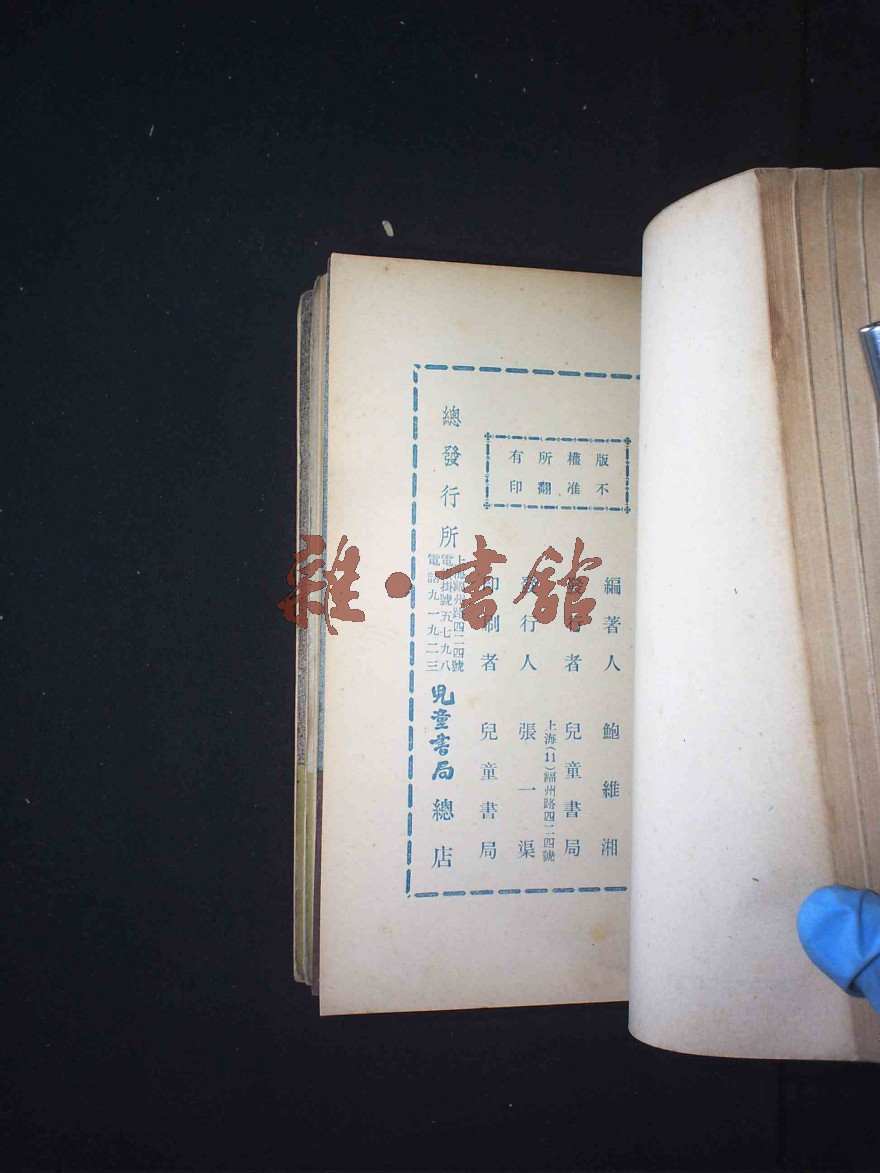 版權所有
不准翻印
編著人 鮑維湘
發行者 兒童書局
上海(11)福州路四二四號
發行人 張一渠
印刷者 兒童書局
總發行所
上海福州路四二四號
電報掛號五七九八
電話九一九二三
兒童書局總店
雜·書館